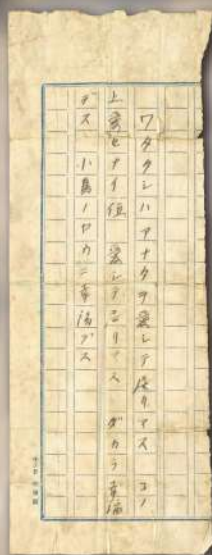 ワタクシハアナタヲ愛シテ居リマス コノ
上愛セナイ位 愛シテ居リマス ダカラ幸福
デス 小鳥ノヤウニ幸福デス